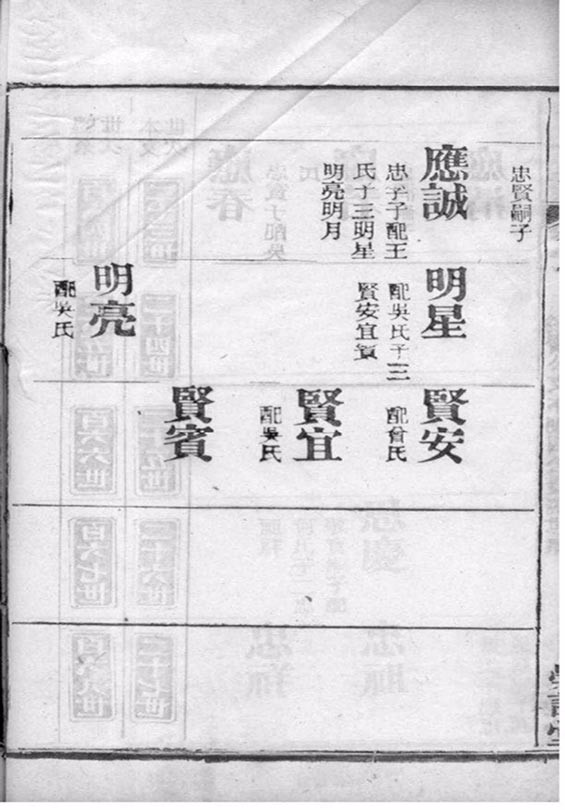 忠賢嗣子
應誠
忠子子配王
氏子三明星
明亮明月
明星
配吳氏子三
賢安宜賓
明亮
配吳氏
賢安
配曾氏
賢宜
配吳氏
賢賓